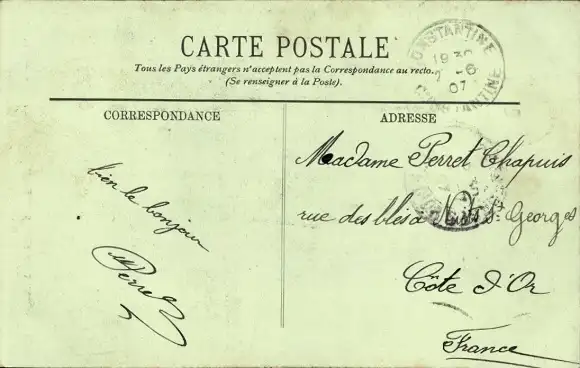 CARTE POSTALE
Tous les Pays étrangers n'acceptent pas la Correspondance au recto.
(Se renseigner à la Poste).
CONSTANTINE
19
-6
07
CONSTANTINE
CORRESPONDANCE
ADRESSE
bien le bonjour
Perret
Madame Perret Chapuis
rue des blés à Nuits St Georges
Côte d'Or
France